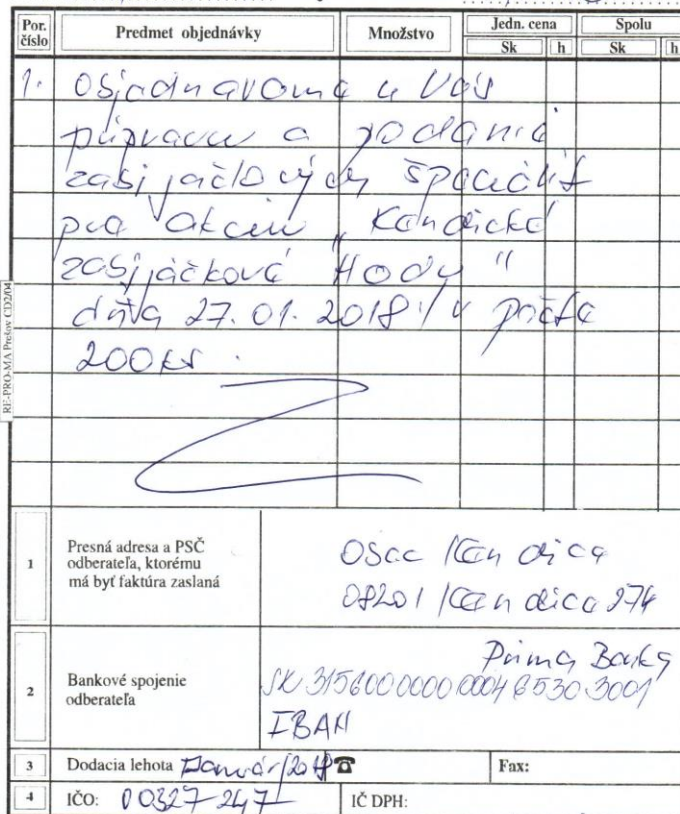 Por. číslo Predmet objednávky Množstvo Jedn. cena Spolu
Sk h Sk h
1. Objednávame u Vás
prípravu a podanie
zabíjačkových špecialít
pre akciu „Kendické
zabíjačkové Hody"
dňa 27.01.2018 v počte
200 ks.
RE-PRO-MA Prešov CD2/04
1 Presná adresa a PSČ
odberateľa, ktorému
má byť faktúra zaslaná
Obec Kendice
08201 Kendice 274
2 Bankové spojenie
odberateľa
Prima Banka
SK 3156000000000
IBAN
3 Dodacia lehota Január/2018 ☎ Fax:
4 IČO: 00327247 IČ DPH: